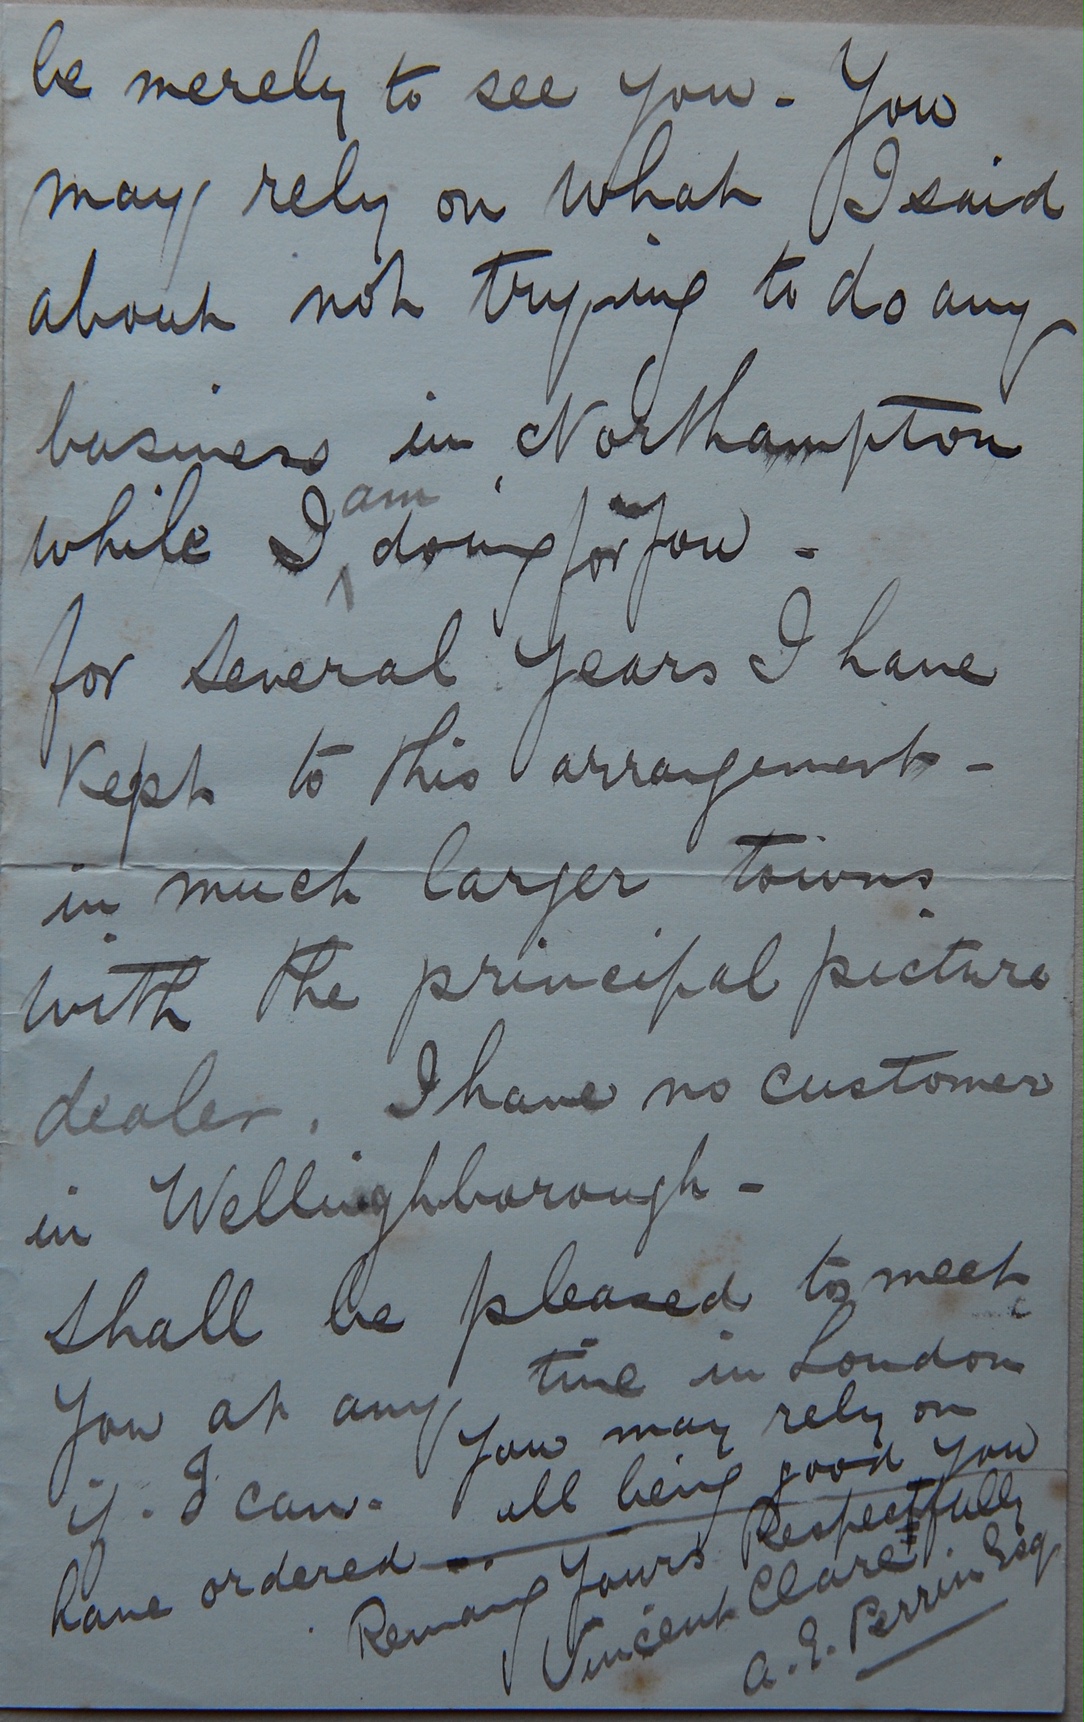 be merely to see you - You
may rely on what I said
about not trying to do any
business in Northampton
while I am doing for you -
for several years I have
Kept to this arrangement -
in much larger towns
with the principal picture
dealer. I have no customer
in Wellinghborough -
shall be pleased to meet
you at any time in London
if I can - You may rely on
all being good you
have ordered -
Remaing Yours Respectfully
Vincent Clare
A. E. Perrin Esq